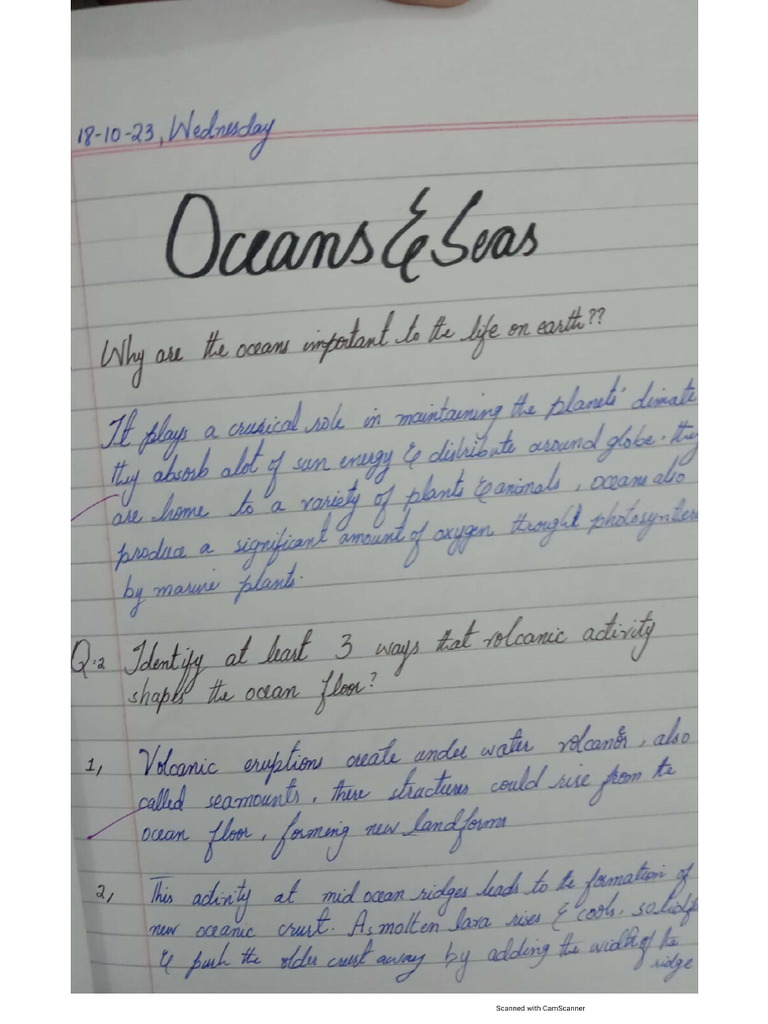 18-10-23, Wednesday
Oceans & Seas
Why are the oceans important to the life on earth??
It plays a crusical role in maintaining the planets' climate
they absorb alot of sun energy & distribute around globe. they
are home to a variety of plants & animals, oceans also
produce a significant amount of oxygen throught photosynthes
by marine plants.
Q.2 Identify at least 3 ways that volcanic activity
shapes the ocean floor?
1, Volcanic eruptions create under water volcanoes, also
called seamounts, these structures could rise from the
ocean floor, forming new landforms
2, This activity at mid ocean ridges leads to the formation of
new oceanic crust. As molten lava rises & cools, solidify
& push the older crust away by adding the width of the
ridge
Scanned with CamScanner